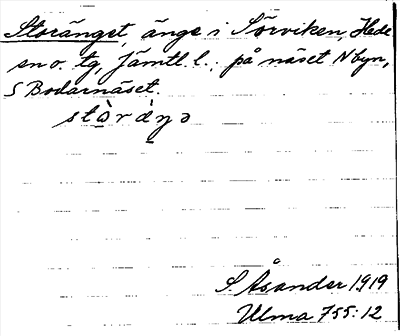 Storänget, änge i Sörviken, Hede
sn o. tg, Jämtl. l.; på näset N byn,
S Bodarnäset.
stòràŋə
S. Åsander 1919
Ulma 755:12